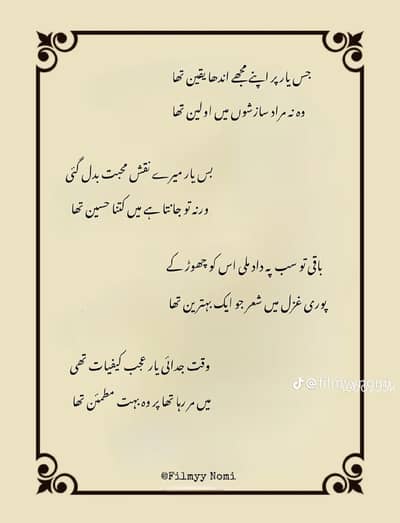 جس یار پر اپنے مجھے اندھا یقین تھا
وہ نہ مراد سازشوں میں اولین تھا
بس یار میرے نقش محبت بدل گئی
ورنہ تو جانتا ہے میں کتنا حسین تھا
باقی تو سب پہ داد ملی اس کو چھوڑ کے
پوری غزل میں شعر جو ایک بہترین تھا
وقت جدائی یار عجب کیفیات تھی
میں مر رہا تھا پر وہ بہت مطمئن تھا
@filmyynomi
@Filmyy Nomi